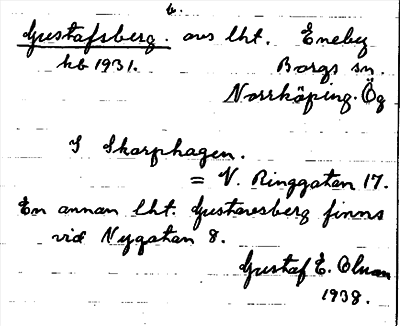 t.
Gustafsberg. avs lht. Eneby
hb 1931. Borgs sn.
Norrköping. Ög
I Skarphagen.
= N. Ringgatan 17.
En annan lht. Gustavsberg finns
vid Nygatan 8.
Gustaf E. Olsson
1938.